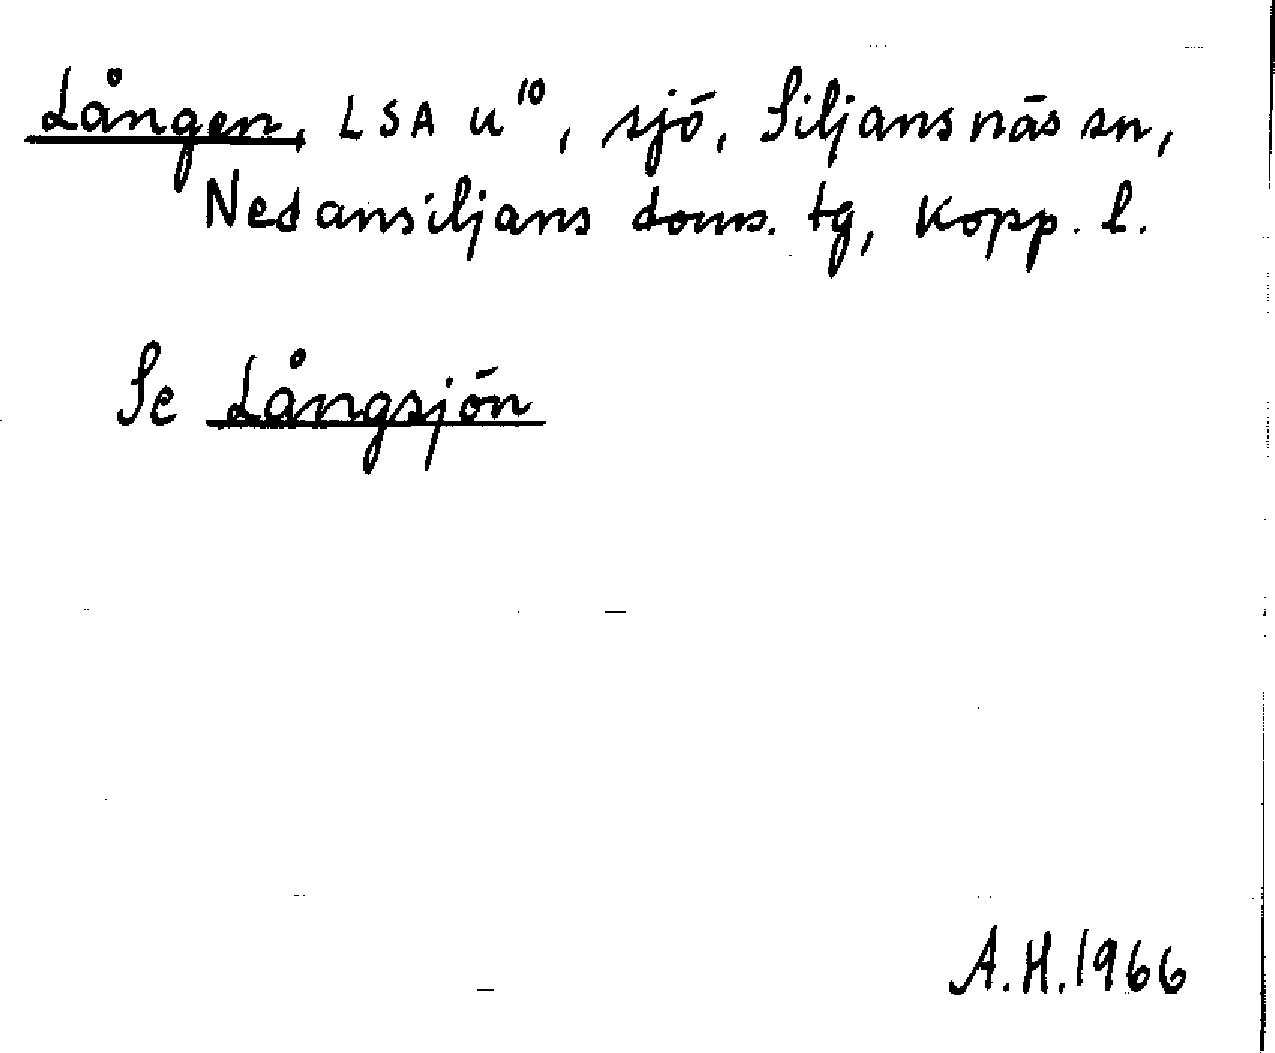 Lången, LSA u¹⁰, sjö, Siljansnäs sn,
Nedansiljans doms. tg, Kopp. l.
Se Långsjön
A.H. 1966